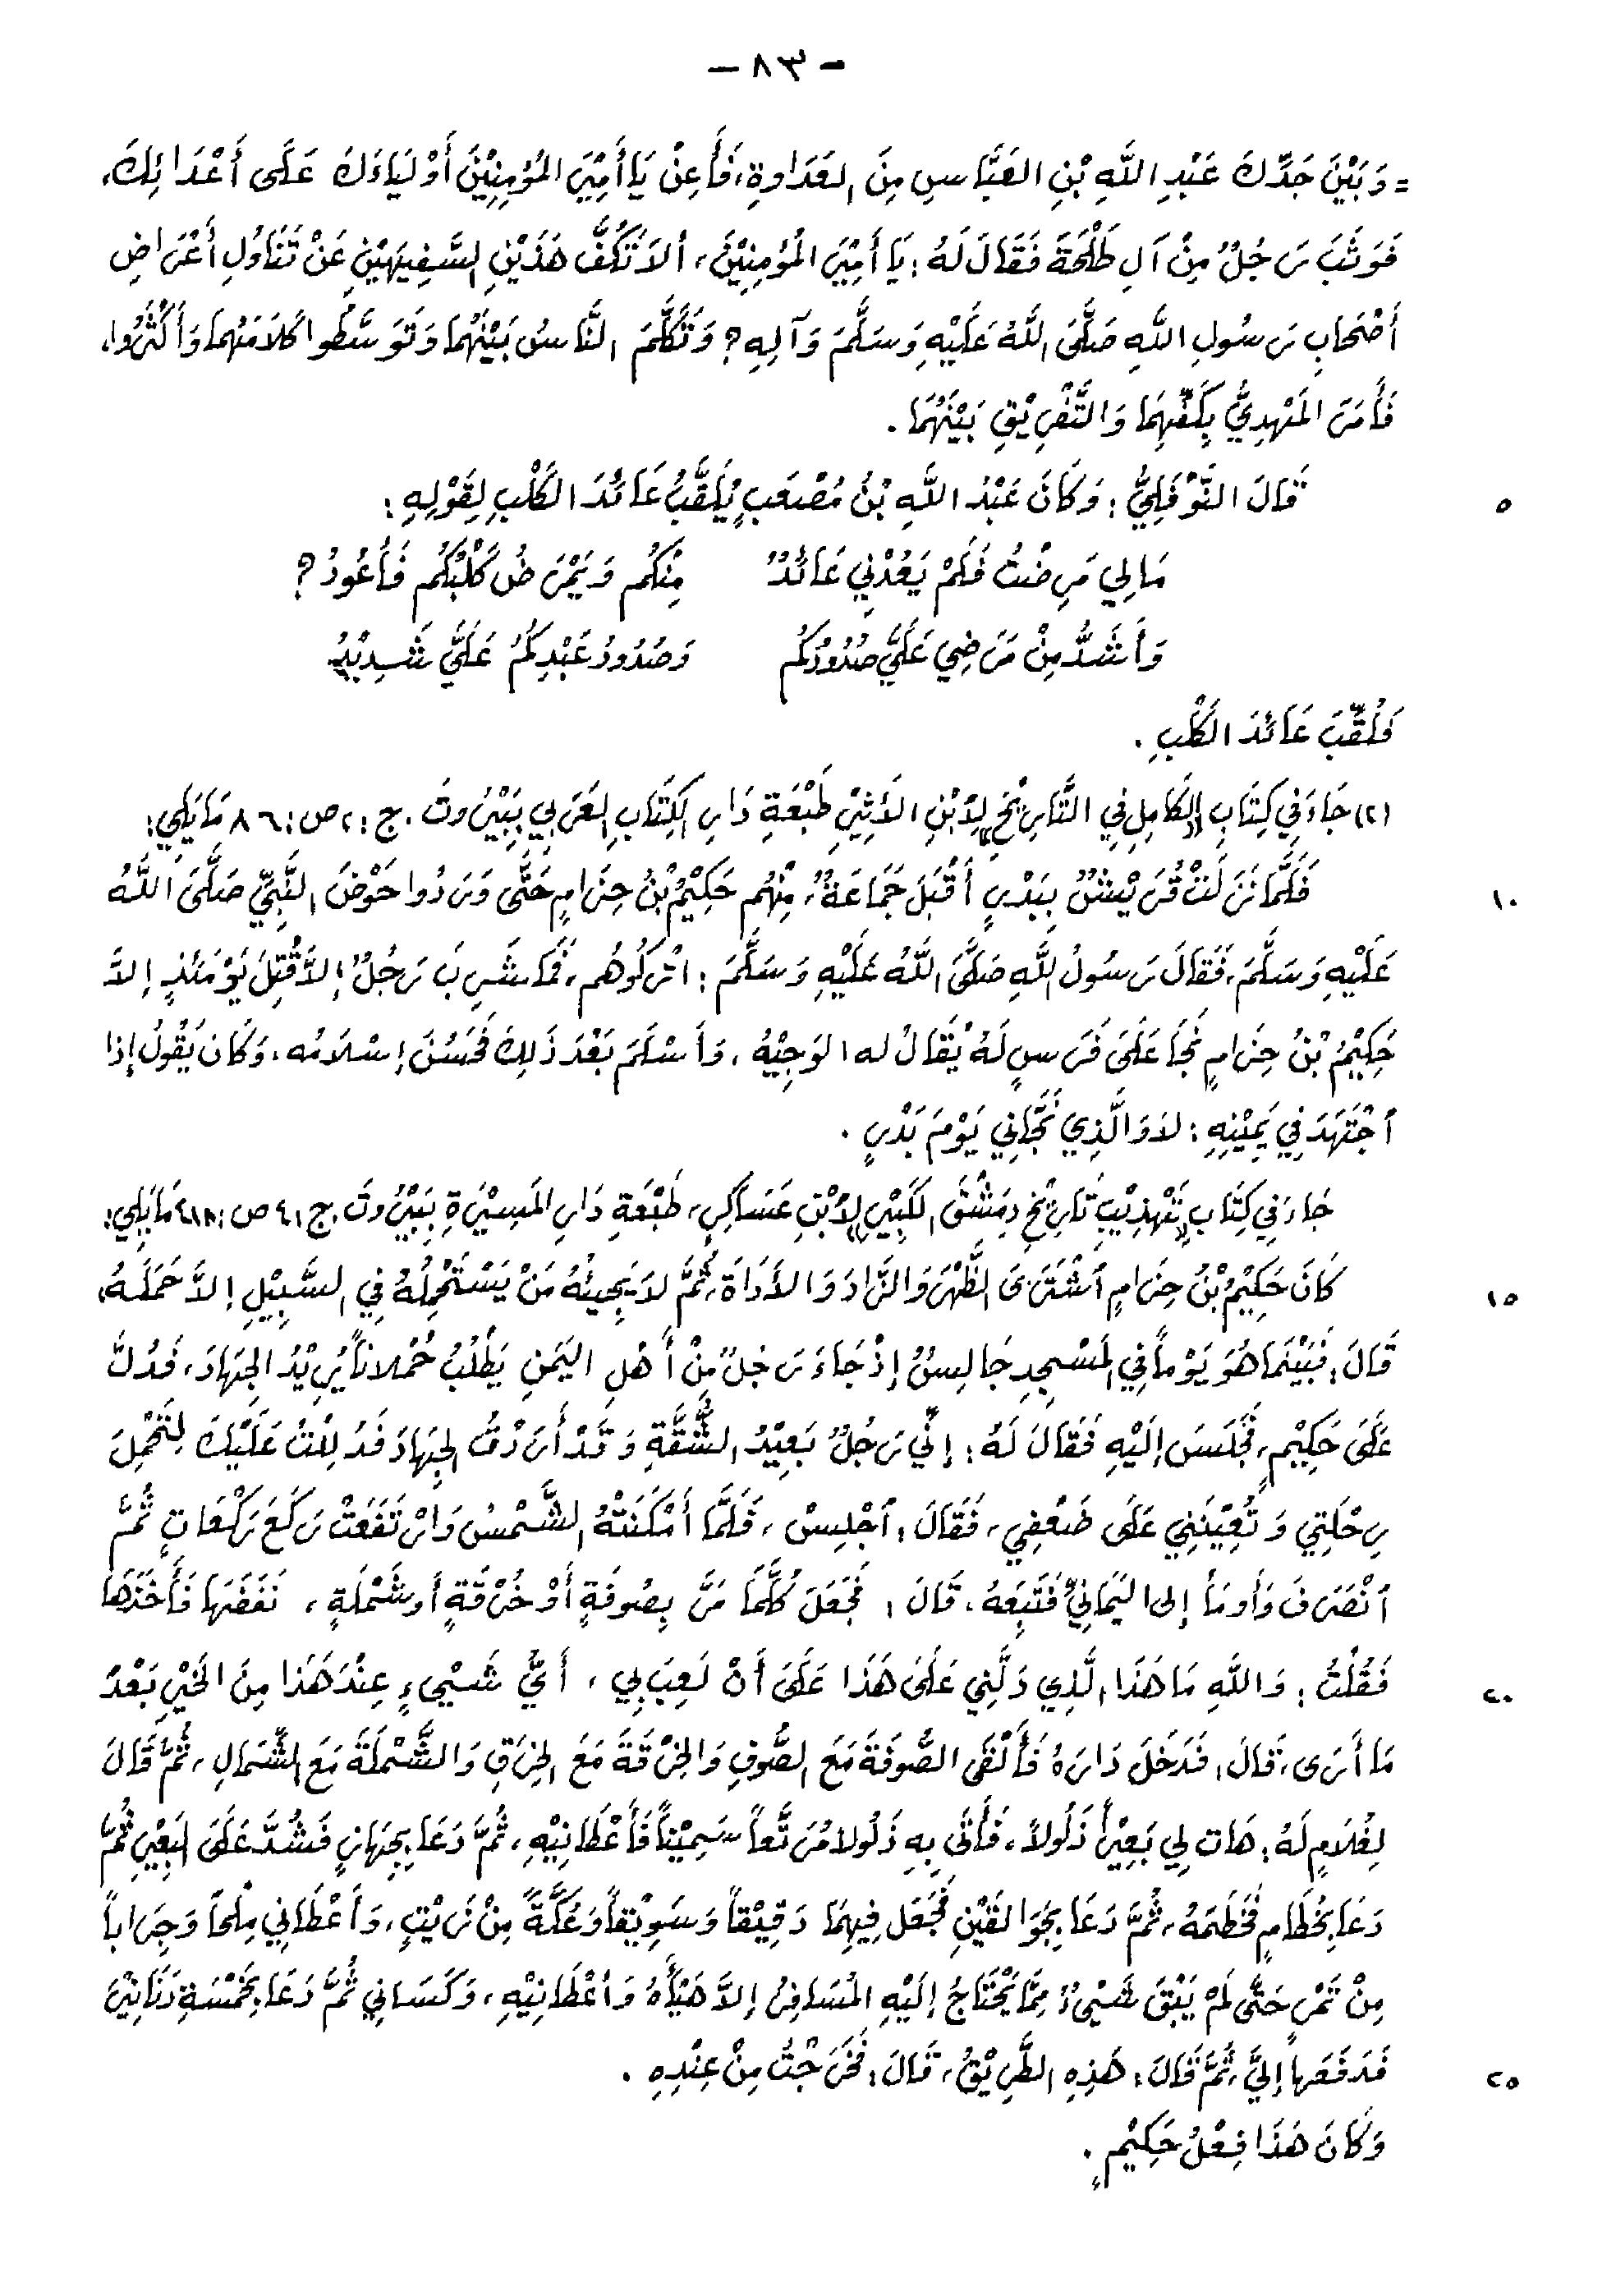 - ٨٣ -
= وَبَيْنَ جَدِّكَ عَبْدِ اللَّهِ بْنِ العَبَّاسِ مِنَ العَدَاوةِ، فَأَعِنْ يَا أَمِيْرَ المُؤمِنِيْنَ أَوْلَيَاءَكَ عَلَى أَعْدَائِكَ،
فَوَثَبَ رَجُلٌ مِنْ آلِ طَلْحَةَ فَقَالَ لَهُ: يَا أَمِيْرَ المُؤمِنِيْنَ، ألاَ تَكُفَّ هَذَيْنِ السَّفِيهَيْنِ عَنْ تَنَاوُلِ أعْرَاضِ
أَصْحَابِ رَسُولِ اللَّهِ صَلَّى اللَّهُ عَلَيْهِ وَسَلَّمَ وَآلِهِ؟ وَتَكَلَّمَ النَّاسُ بَيْنَهُمَا وَتَوَسَّطُوا كَلاَمَهُمَا وَأَكْثَرُوا،
فَأَمَرَ المَهْدِيُّ بِكَفِّهِمَا وَالتَّفْرِيْقِ بَيْنَهُمَا.
٥ قَالَ النَّوْفَلِيُّ: وَكَانَ عَبْدُ اللَّهِ بْنُ مُصْعَبٍ يُلَقَّبُ عَائدَ الكَلْبِ لِقَوْلِهِ:
مَا لِي مَرِضْتُ فَلَمْ يَعُدْنِي عَائدٌ مِنْكُم وَيَمْرَضُ كَلْبُكُم فَأَعُودُ؟
وَأَشَدُّ مِنْ مَرَضِي عَلَيَّ صُدُودُكُم وَصُدُودُ عَبْدِكُمُ عَلَيَّ شَدِيْدُ
فَلُقِّبَ عَائدَ الكَلْبِ.
(٢) جَاءَ فِي كِتَابِ «الكَامِلِ فِي التَّارِيْخِ» لِابْنِ الأَثِيْرِ طَبْعَةِ دَارِ الكِتَابِ العَرَبِي بِبَيْرُوتَ. ج: ٢ ص: ٨٦ مَا يَلِي:
١٠ فَلَمَّا نَزَلَتْ قُرَيْشٌ بِبَدْرٍ أَقْبَلَ جَمَاعَةٌ، مِنْهُم حَكِيْمُ بْنُ حِزَامٍ حَتَّى وَرَدُوا حَوْضَ النَّبِيِّ صَلَّى اللَّهُ
عَلَيْهِ وَسَلَّمَ، فَقَالَ رَسُولُ اللَّهِ صَلَّى اللَّهُ عَلَيْهِ وَسَلَّمَ: اتْرُكُوهُم، فَمَا شَرِبَ رَجُلٌ إلاَّ قُتِلَ يَوْمَئذٍ إلاَّ
حَكِيْمُ بْنُ حِزَامٍ نَجَا عَلَى فَرَسٍ لَهُ يُقَالُ له الوَجِيْهُ، وَأَسْلَمَ بَعْدَ ذَلِكَ فَحَسُنَ إسْلاَمُه، وَكَانَ يَقُولُ إذا
اجْتَهَدَ فِي يَمِيْنِهِ: لاَ وَالَّذِي نَجَّانِي يَوْمَ بَدْرٍ.
جَاءَ فِي كِتَابِ «تَهْذِيْبِ تَارِيْخِ دِمَشْقَ الكَبِيْرِ» لِابْنِ عَسَاكِرٍ، طَبْعَةِ دَارِ المَسِيْرَةِ بِبَيْرُوتَ. ج: ٤ ص: ٤١٨ مَا يَلِي:
١٥ كَانَ حَكِيْمُ بْنُ حِزَامٍ اشْتَرَى الظَّهْرَ وَالزَّادَ وَالأَدَاةَ، ثُمَّ لاَ يَجِيئُهُ مَنْ يَسْتَحْمِلُهُ فِي السَّبِيْلِ إلاَّ حَمَلَهُ،
قَالَ: فَبَيْنَمَا هُوَ يَوْماً فِي المَسْجِدِ جَالِسٌ إذْ جَاءَ رَجُلٌ مِنْ أَهْلِ اليَمَنِ يَطْلُبُ حُمْلاناً يُرِيْدُ الجِهَادَ، فَدُلَّ
عَلَى حَكِيْمٍ، فَجَلَسَ إلَيْهِ فَقَالَ لَهُ: إنِّي رَجُلٌ بَعِيْدُ الشُّقَّةِ وَقَدْ أَرَدْتُ الجِهَادَ فَدُلِلْتُ عَلَيْكَ لِتَحْمِلَ
رِحْلَتِي وَتُعِيْنَنِي عَلَى ضَعْفِي، فَقَالَ: اجْلِسْ، فَلَمَّا أَمْكَنَتْهُ الشَّمْسُ وَارْتَفَعَتْ رَكَعَ رَكْعَاتٍ ثُمَّ
انْصَرَفَ وَأَومَأَ إلى اليَمَانِيِّ فَتَبِعَهُ، قَالَ: فَجَعَلَ كُلَّمَا مَرَّ بِصُوفَةٍ أَوْ خُرْقَةٍ أَو شَمْلَةٍ، نَفَضَهَا فَأَخَذَهَا
٢٠ فَقُلْتُ: وَاللَّهِ مَا هَذَا الَّذِي دَلَّنِي عَلَى هَذَا عَلَى أَنْ لَعِبَ بِي، أَيُّ شَيْىءٍ عِنْدَ هَذَا مِنَ الخَيْرِ بَعْدُ
مَا أَرَى، قَالَ: فَدَخَلَ دَارَهُ فَأَلْقَى الصُّوفَةَ مَعَ الصُّوفِ وَالخِرْقَةَ مَعَ الخِرَقِ وَالشَّمْلَةَ مَعَ الشِّمَالِ، ثُمَّ قَالَ
لِغُلاَمٍ لَهُ: هَات لِي بَعِيْراً ذَلُولاً، فَأَتَى بِهِ ذَلُولاً مُرَتَّعاً سَمِيْناً فَأَعْطَانِيْهِ، ثُمَّ دَعَا بِجِهَازٍ فَشُدَّ عَلَى البَعِيْرِ ثُمَّ
دَعَا بِخِطَامٍ فَخَطَمَهُ، ثُمَّ دَعَا بِجَوَالقَيْنِ فَجَعَلَ فِيهِمَا دَقِيْقاً وَسَوِيْقاً وَعُكَّةً مِنْ زَيْتٍ، وَأَعْطَانِي مِلْحاً وَجِرَاباً
مِنْ تَمْرٍ حَتَّى لَمْ يَبْقَ شَيْىءٌ مِمَّا يَحْتَاجُ إلَيْهِ المُسَافِرُ إلاَّ هَيَّأَهُ وَأَعْطَانِيْهِ، وَكَسَانِي ثُمَّ دَعَا بِخَمْسَةِ دَنَانِيْرَ
٢٥ فَدَفَعَها إلَيَّ، ثُمَّ قَالَ: هَذِهِ الطَّرِيْقُ، قَالَ: فَخَرَجْتُ مِنْ عِنْدِهِ.
وَكَانَ هَذَا فِعْلُ حَكِيْمٍ.